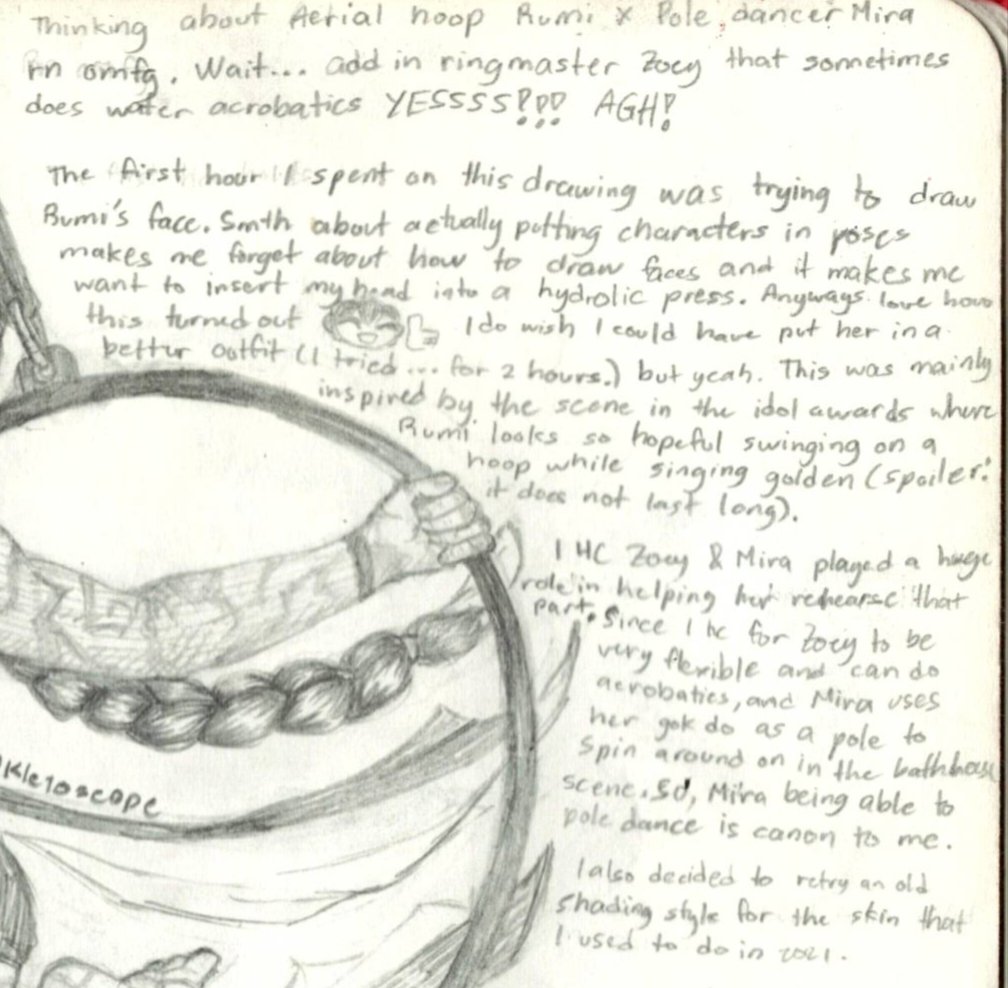 Thinking about Aerial hoop Rumi x Pole dancer Mira
rn omfg. Wait... add in ringmaster Zoey that sometimes
does water acrobatics YESSSS!!! AGH!
The first hour I spent on this drawing was trying to draw
Rumi's face. Smth about actually putting characters in poses
makes me forget about how to draw faces and it makes me
want to insert my head into a hydrolic press. Anyways love how
this turned out I do wish I could have put her in a
better outfit (I tried... for 2 hours.) but yeah. This was mainly
inspired by the scene in the idol awards where
Rumi looks so hopeful swinging on a
hoop while singing golden (spoiler:
it does not last long).
I HC Zoey & Mira played a huge
role in helping her rehearse that
part. Since I hc for Zoey to be
very flexible and can do
acrobatics, and Mira uses
her gok do as a pole to
spin around on in the bathhouse
scene. So, Mira being able to
pole dance is canon to me.
kleloscope
I also decided to retry an old
shading style for the skin that
I used to do in 2021.